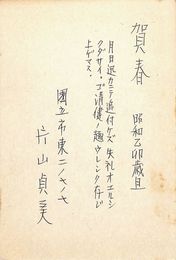 賀春
昭和乙卯歳旦
月日迅カニテ追付ケズ失礼オユルシ
クダサイ。ゴ清健ノ趣ウレシク存ジ
上ゲマス。
國立市東二ノ
片山貞美